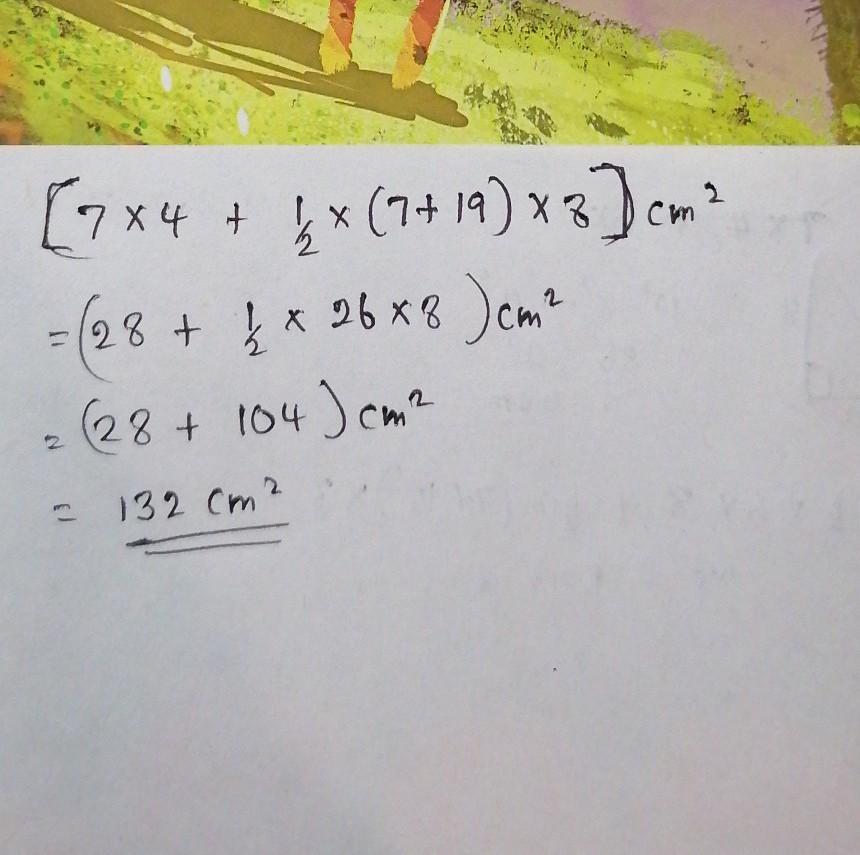 [7 × 4 + ½ × (7 + 19) × 8] cm²
= (28 + ½ × 26 × 8) cm²
= (28 + 104) cm²
= 132 cm²